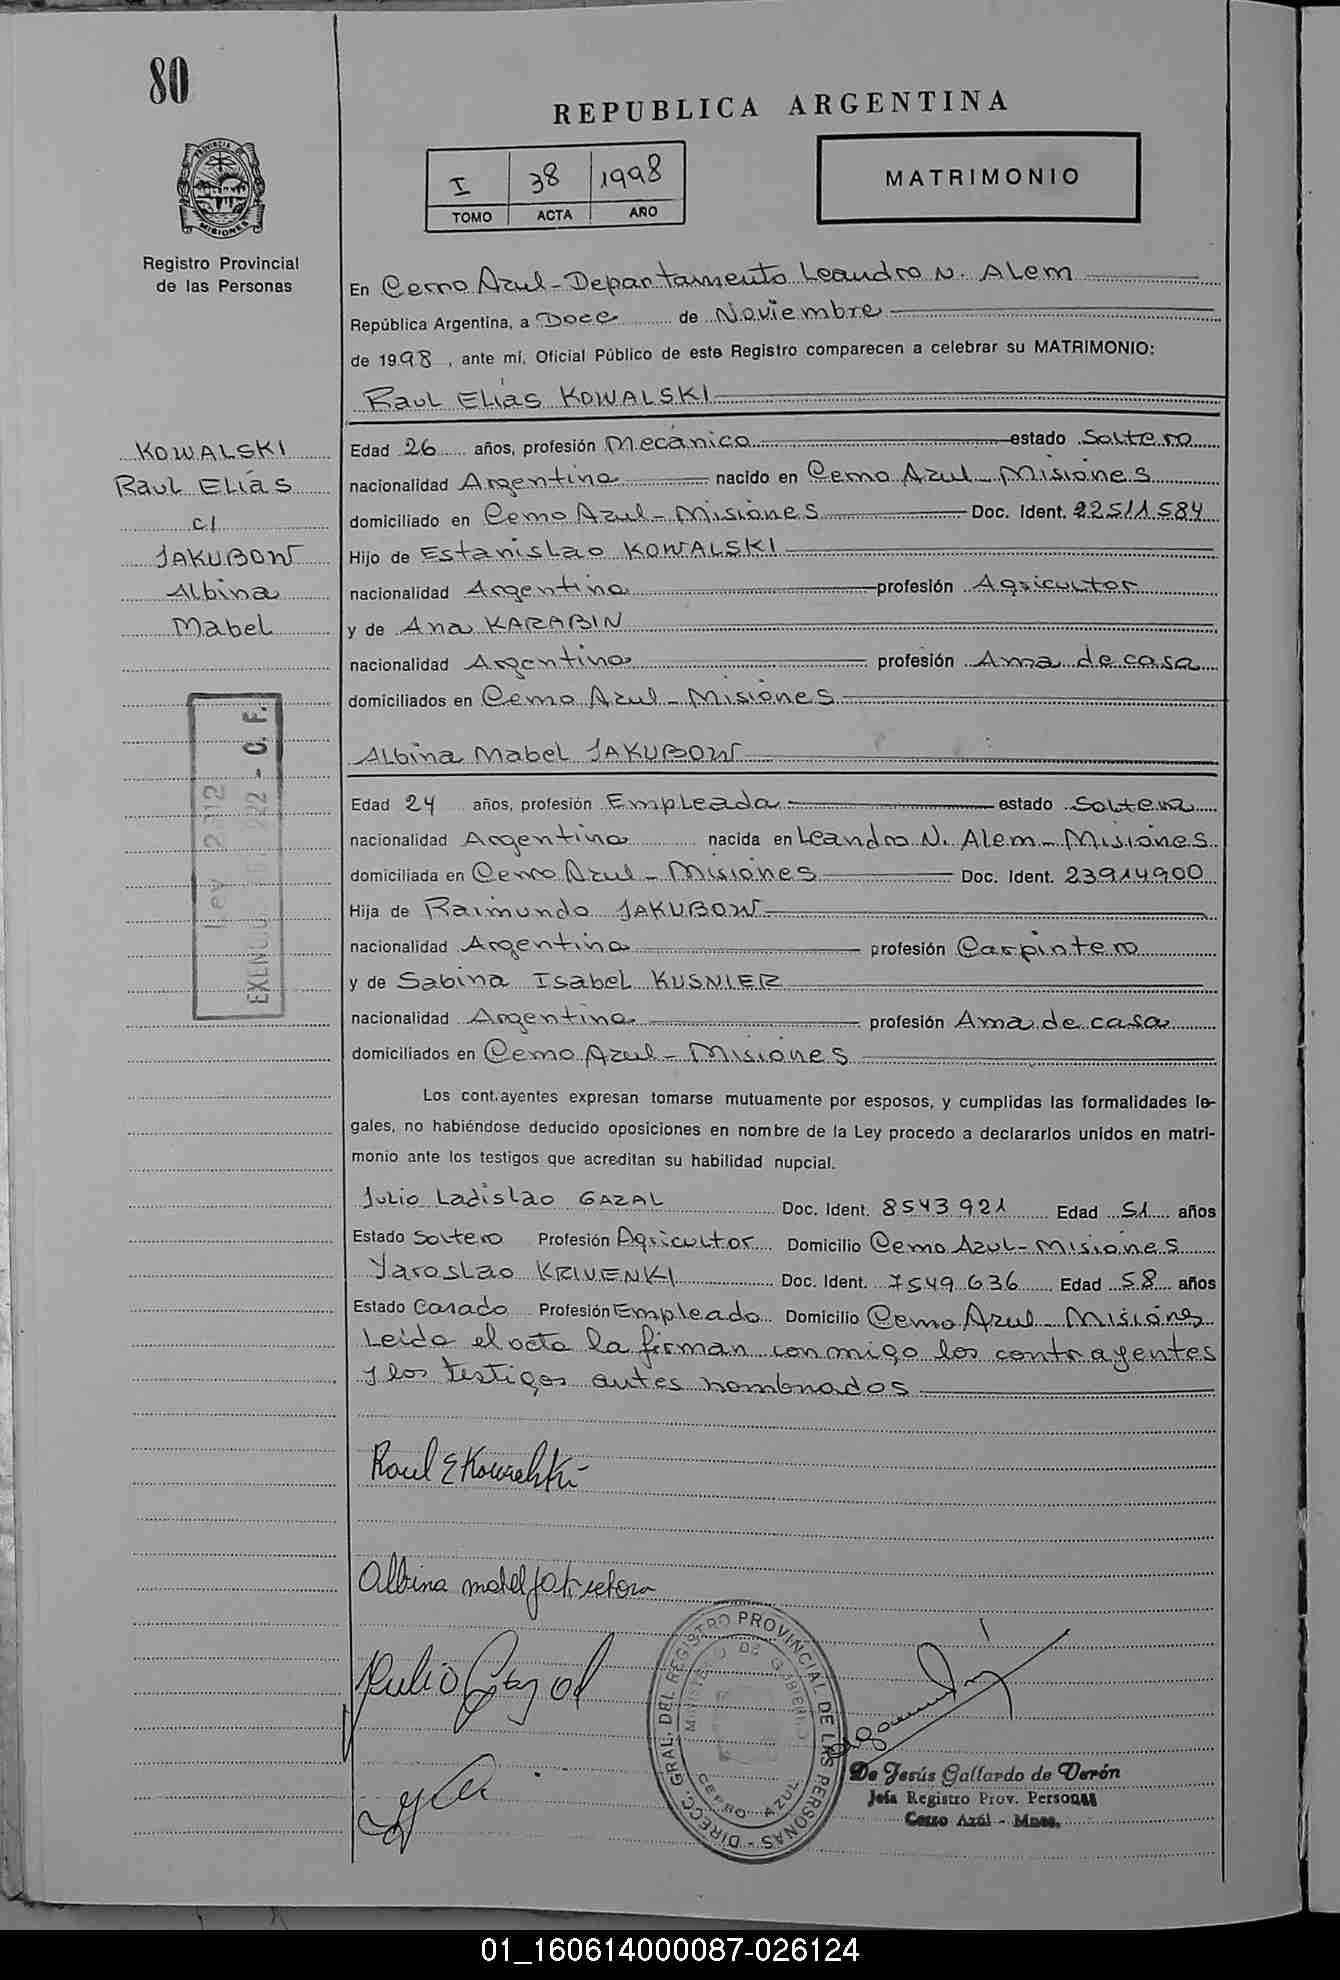 80
REPUBLICA ARGENTINA
PROVINCIA DE
MISIONES
Registro Provincial
de las Personas
I 38 1998
TOMO ACTA AÑO
MATRIMONIO
En Cerro Azul - Departamento Leandro N. Alem
República Argentina, a Doce de Noviembre
de 1998, ante mí, Oficial Público de este Registro comparecen a celebrar su MATRIMONIO:
Raul Elías KOWALSKI
KOWALSKI
Raul Elías
c/
JAKUBOW
Albina
Mabel
Edad 26 años, profesión Mecánico estado Soltero
nacionalidad Argentina nacido en Cerro Azul - Misiones
domiciliado en Cerro Azul - Misiones Doc. Ident. 22511584
Hijo de Estanislao KOWALSKI
nacionalidad Argentino profesión Agricultor
y de Ana KARABIN
nacionalidad Argentina profesión Ama de casa
domiciliados en Cerro Azul - Misiones
Albina Mabel JAKUBOW
Edad 24 años, profesión Empleada estado Soltera
nacionalidad Argentina nacida en Leandro N. Alem - Misiones
domiciliada en Cerro Azul - Misiones Doc. Ident. 23914900
Hija de Raimundo JAKUBOW
nacionalidad Argentino profesión Carpintero
y de Sabina Isabel KUSNIER
nacionalidad Argentina profesión Ama de casa
domiciliados en Cerro Azul - Misiones
Ley
- C. F.
Los cont.ayentes expresan tomarse mutuamente por esposos, y cumplidas las formalidades le-
gales, no habiéndose deducido oposiciones en nombre de la Ley procedo a declararlos unidos en matri-
monio ante los testigos que acreditan su habilidad nupcial.
Julio Ladislao GAZAL Doc. Ident. 8543921 Edad 51 años
Estado Soltero Profesión Agricultor Domicilio Cerro Azul - Misiones
Yaroslao KRIVENKI Doc. Ident. 7549636 Edad 58 años
Estado Casado Profesión Empleado Domicilio Cerro Azul - Misiones
Leida el acta la firman conmigo los contrayentes
y los testigos antes nombrados
Raul E Kowalski
Albina Mabel Jakubow
Julio Gazal
DIRECC. GRAL. DEL REGISTRO PROVINCIAL DE LAS PERSONAS -
MINISTERIO DE GOBIERNO
CERRO AZUL
De Jesús Gallardo de Verón
Jefa Registro Prov. Personas
Cerro Azúl - Mnes.
01_160614000087-026124